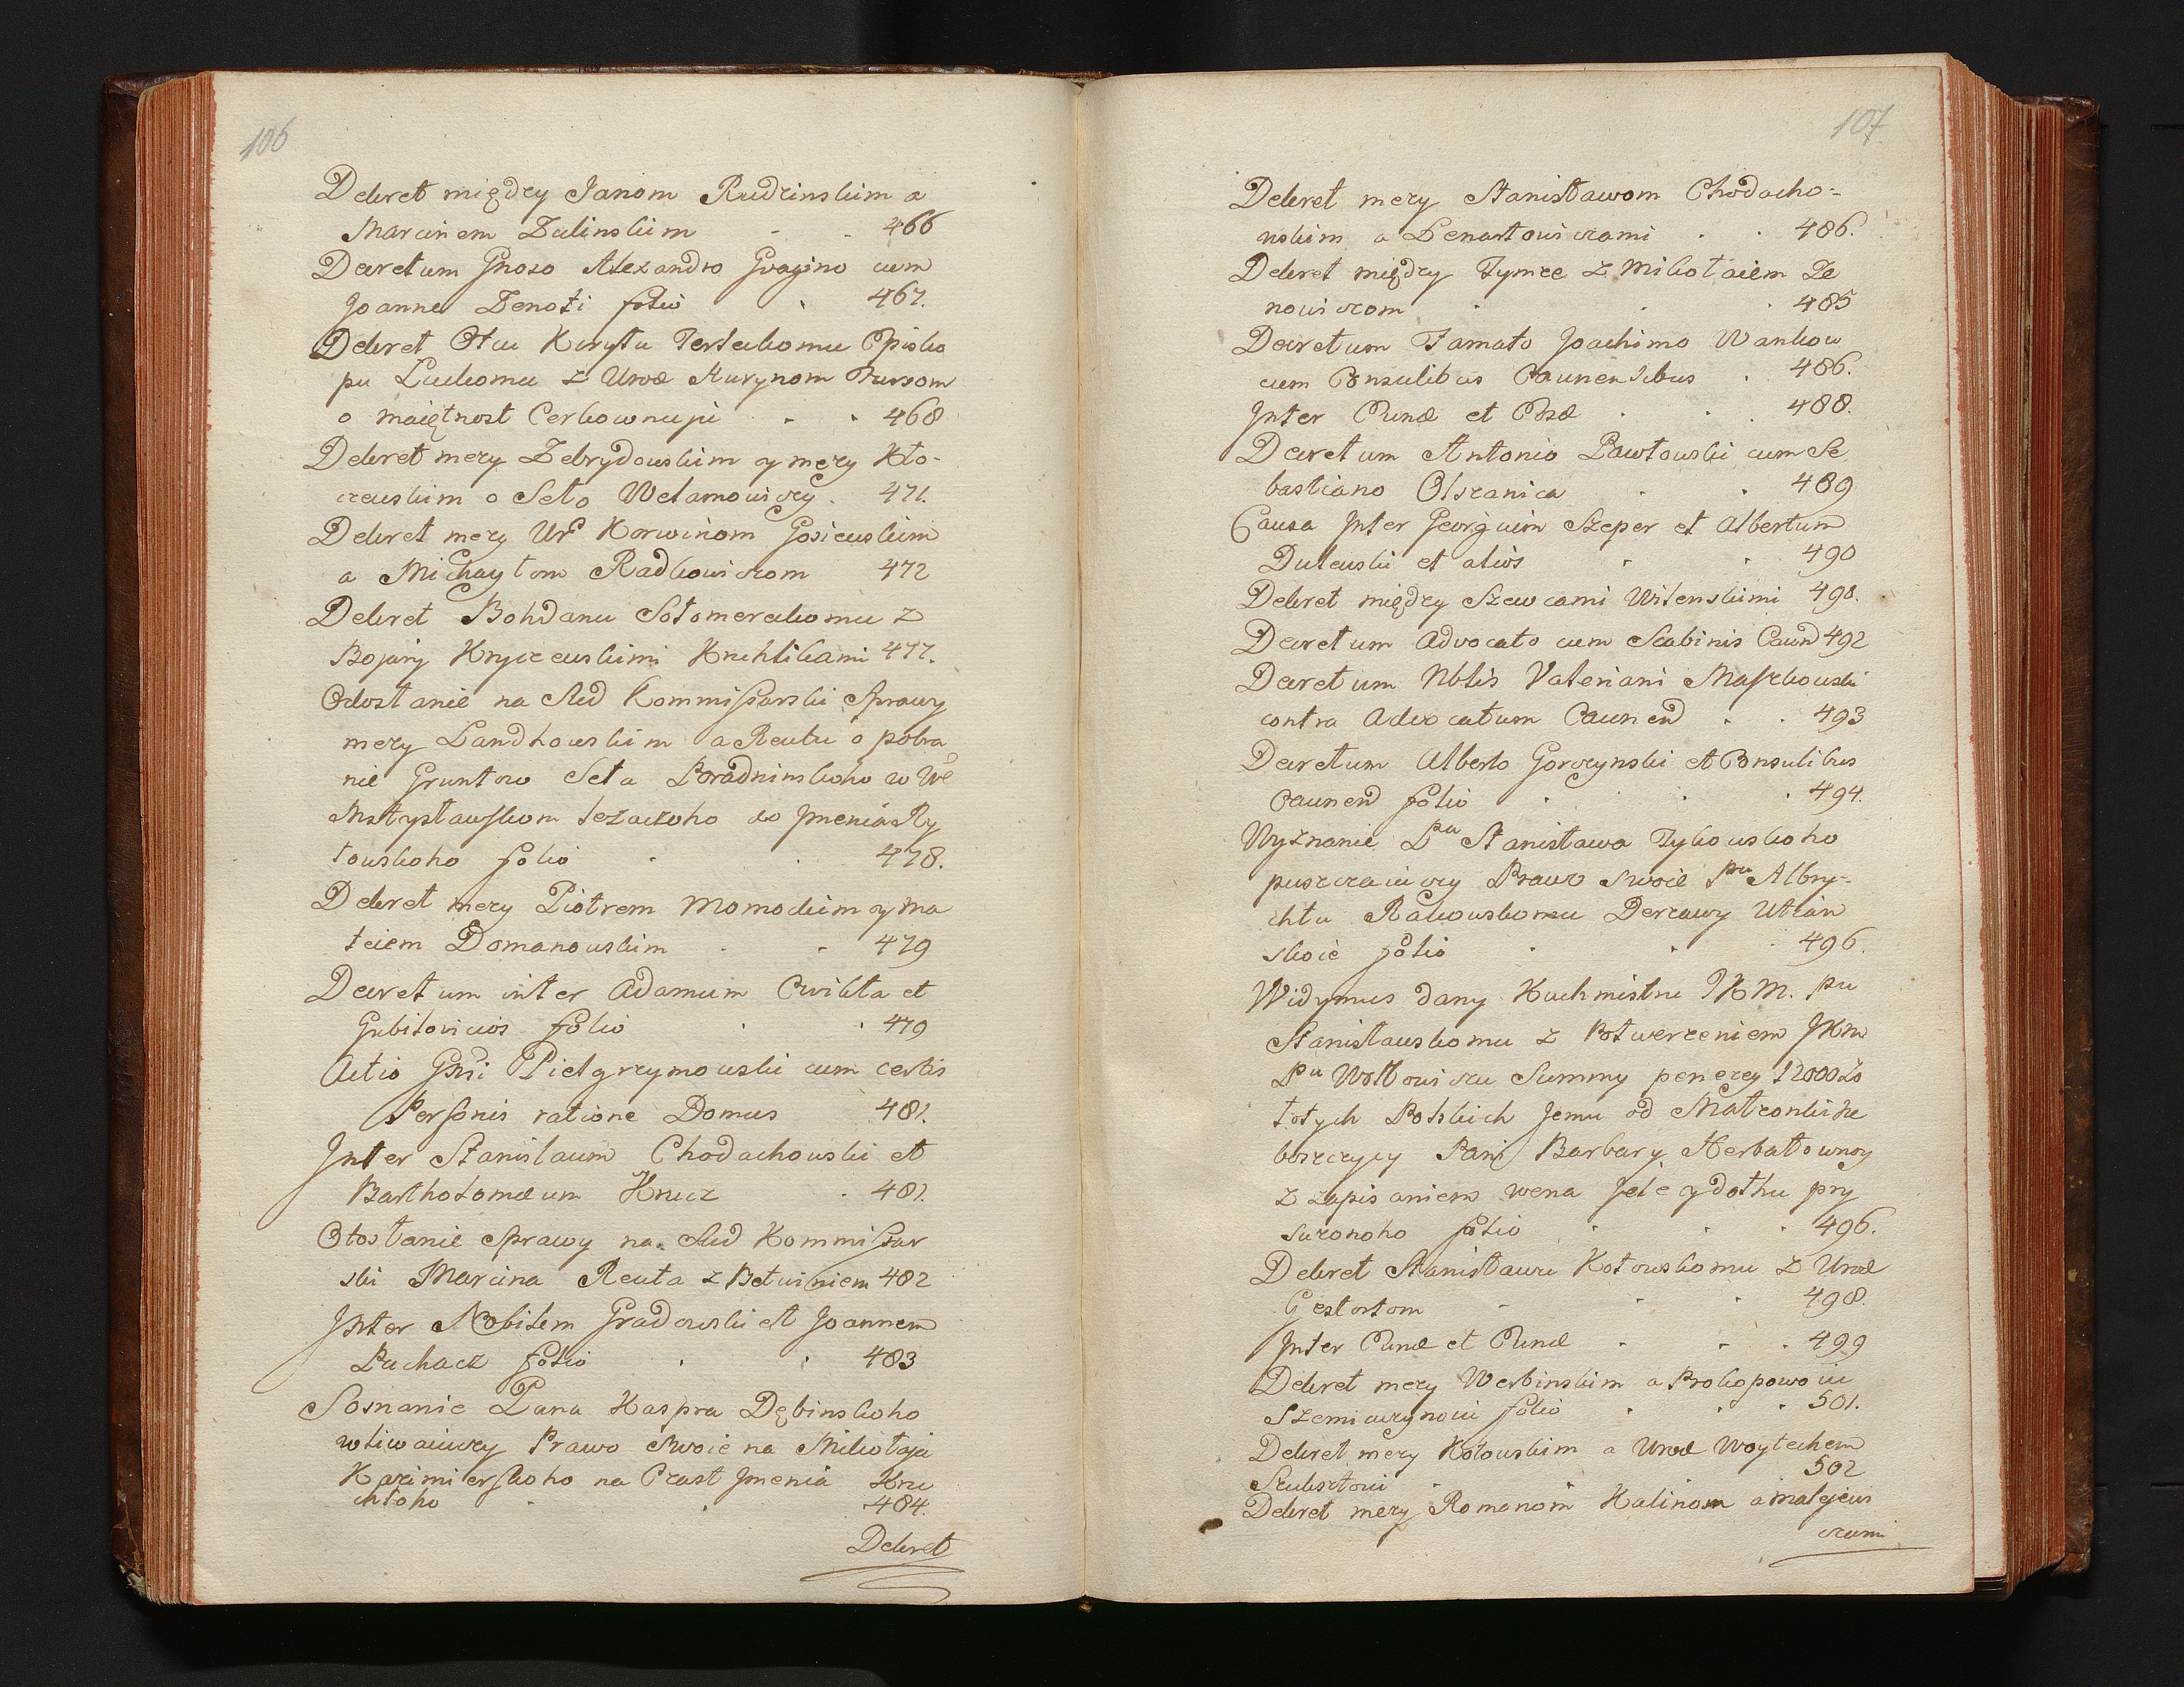 106
Dekret między Janom Rudzinskim a
Marcinem Zulinskim - - 466
Decretum Gnoso Alexandro Gvagino cum
Joanne Zenoti folio . 467.
Dekret Otcu Kirytu Terteckomu Episko
pu Luckomu z Urod Auxynom Bursom
o maiętnost Cerkownuju - . 468
Dekret mezy Zebrydowskim y mezy Kło-
czewskim o Seło Wetamowiczy . 471.
Dekret mezy Ur Korwinom Gosiewskim
a Michayłom Radkowiczom 472
Dekret Bohdanu Sołomereckomu z
Bojary Kryczewskimi Kruhlikami 477.
Odosłanie na Sud Kommissarski Sprawy
mezy Landhowskim a Reutu o pobra
nie Gruntow Seła Poradninskoho w We
Mstysławskom lezaczoho do Jmenia Ry
towskoho folio . . 478.
Dekret mezy Piotrem Momockim y Ma
teiem Domanowskim . - 479
Decretum inter Adamum Cwikła et
Gubitovicios folio . . 479
Actio Gnsi Pielgrzymowski cum certis
Personis ratione Domus 481.
Inter Stanislaum Chodachowski et
Bartholomæum Krucz . 481.
Otosłanie Sprawy na Sud Kommissar
ski Marcina Reuta z Betwiniem 482
Inter Nobilem Gradowski et Joannem
Puchacz folio . . 483
Soznanie Pana Kaspra Dębinskoho
wliwaiuczy Prawo Swoie na Mikołaja
Kazimierskoho na Czast Jmenia Kru
chłoho . . 484.
Dekret
107
Dekret mezy Stanisławom Chodacho=
wskim a Lenartowiczami . . 486.
Dekret między Tymze z Mikołaiem Ze
nowiczom . . . 485
Decretum Famato Joachimo Wankow
cum Consulibus Caunensibus . 486.
Inter Eund et Eosd . . . 488.
Decretum Antonio Pawłowski cum Se
bastiano Olszanica . . 489
Causa Inter Georgium Szeper et Albertum
Dulewski et alios . . 490
Dekret między Szewcami Wilenskimi 490.
Decretum Advocato cum Scabinis Caund 492
Decretum Nblis Valeriani Maszkowski
contra Advocatum Caunend . . 493
Decretum Alberto Gorczynski et Consulibus
Caunend folio . . . 494.
Wyznanie Pna Stanisława Tykowskoho
puszczaiuczy Prawo Swoie Pnu Albry-
chtu Rakowskomu Derzawy Utian
skoie folio . . . 496.
Widymus dany Kuchmistru JKM. Pnu
Stanisławskomu z Potwerzeniem JKM
Pnu Wołłowiczu Summy penezey 12000 zo
łotych Polskich Jemu od Małzonki Ne
boszczycy Pani Barbary Herbałtowny
z zapisaniem wena Jeie y dołhu pry
suzonoho folio . . . 496.
Dekret Stanisławu Kołowskomu z Urod
Gestortom . . . 498.
Inter Eund et Eund . - . 499
Dekret mezy Werbinskim a Prokopowo iu
Szemiaczynoiu folio . . . 501.
Dekret mezy Kołowskim a Urod Woytechem
Szuksztoiu . . 502
Dekret mezy Romanom Kalinom a Matyjewi
czami